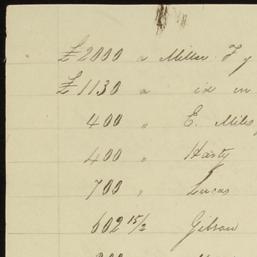 £2000 a Miller F
£1130 a
400 " E. Miles
400 " Hasty
700 " Lucas
602 15/2 Gibson